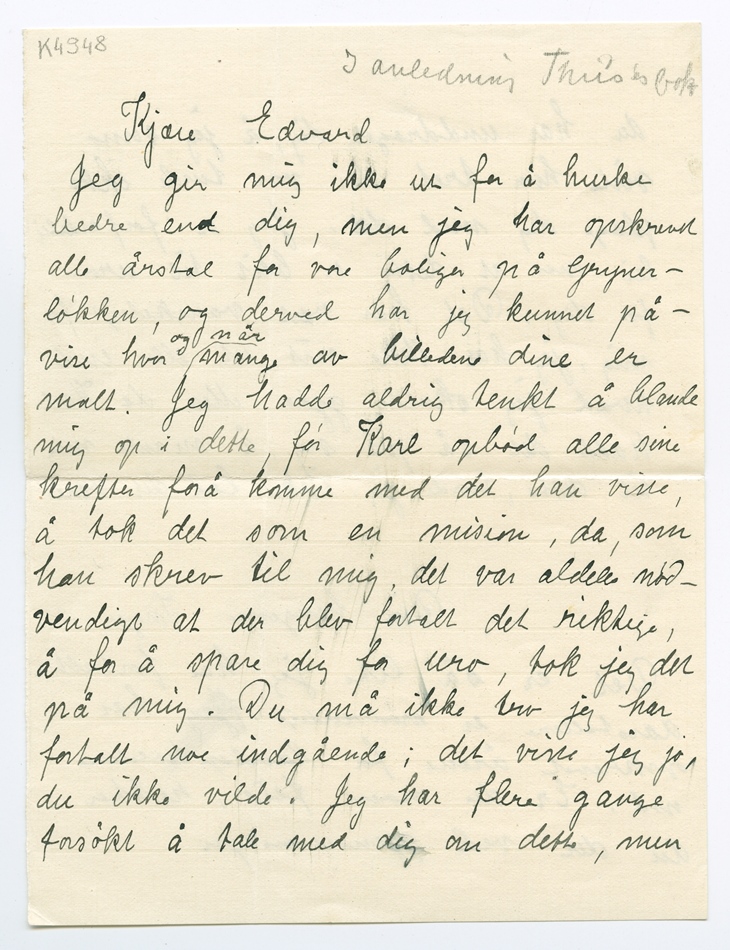 K4948
I anledning Thiis'es bok
Kjære Edvard
Jeg gir mig ikke ut for å huske
bedre end dig, men jeg har opskrevet
alle årstal for vore boliger på Gryner-
løkken, og derved har jeg kunnet på-
vise hvor og når mange av billedene dine er
malt. Jeg hadde aldrig tenkt å blande
mig op i dette, før Karl opbød alle sine
krefter forå komme med det han viste,
å tok det som en mision, da, som
han skrev til mig, det var aldeles nød-
vendigt at der blev fortalt det riktige,
å for å spare dig for uro, tok jeg det
på mig. Du må ikke tro jeg har
fortalt noe indgående; det viste jeg jo,
du ikke vilde. Jeg har flere gange
forsøkt å tale med dig om dette, men